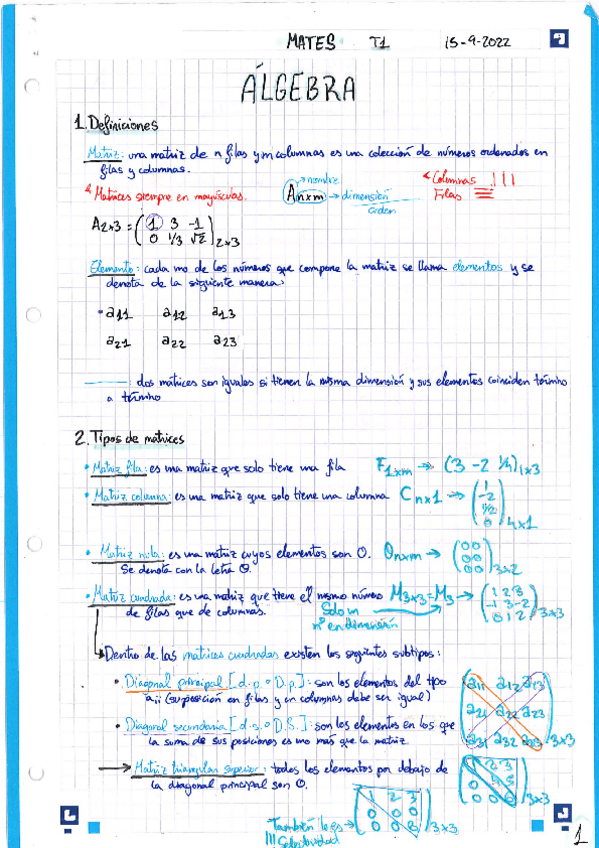 MATES T1 15-9-2022
ÁLGEBRA
1. Definiciones
Matriz: una matriz de n filas y m columnas es una colección de números ordenados en
filas y columnas.
Matrices siempre en mayúsculas.
nombre
An×m → dimensión
orden
Columnas |||
Filas
A2×3 = ( 1 3 -1
0 1/3 √2 )2×3
Elemento: cada uno de los números que compone la matriz se llama elementos y se
denota de la siguiente manera:
• a11 a12 a13
a21 a22 a23
: dos matrices son iguales si tienen la misma dimensión y sus elementos coinciden término
a término
2. Tipos de matrices
• Matriz fila: es una matriz que solo tiene una fila F1×m → (3 -2 1/4)1×3
• Matriz columna: es una matriz que solo tiene una columna Cn×1 → ( 1
-2
1/2
0 )4×1
• Matriz nula: es una matriz cuyos elementos son 0. On×m → ( 0 0
0 0
0 0 )3×2
Se denota con la letra O.
• Matriz cuadrada: es una matriz que tiene el mismo número M3×3 = M3 → ( 1 2 3
-1 3 -2
0 1 2 )3×3
de filas que de columnas.
Solo un
nº en dimensión
Dentro de las matrices cuadradas existen los siguientes subtipos:
• Diagonal principal [d.p. o D.p.]: son los elementos del tipo
aii (su posición en filas y en columnas debe ser igual)
( a11 a12 a13
a21 a22 a23
a31 a32 a33 )3×3
• Diagonal secundaria [d.s. o D.S.]: son los elementos en los que
la suma de sus posiciones es uno más que la matriz
→ Matriz triangular superior: todos los elementos por debajo de
la diagonal principal son 0.
También lo es →
( 1 2 3
0 0 0
0 0 6 )3×3
3×3
!!! Selectividad
1